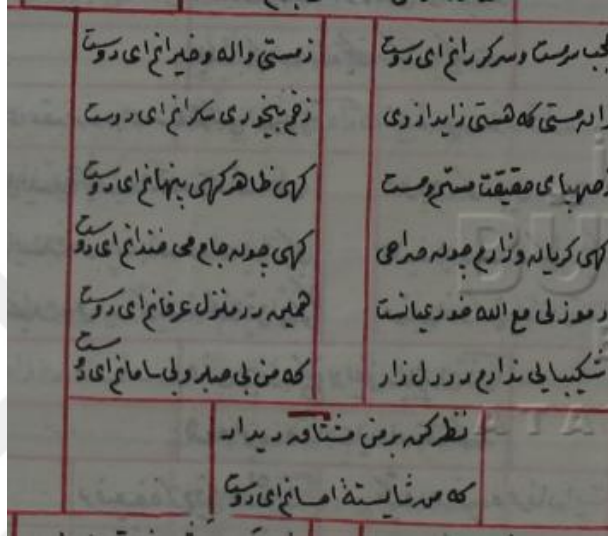 عجب سرمست و سرکردانم ای دوست زمستی واله و حیرانم ای دوست
ازان مستی که هستی زاید از وی زخم بیخودی سکرانم ای دوست
زصهبای حقیقت مستم و مست کهی ظاهر کهی پنهانم ای دوست
کهی کریان و زارم چون صراحی کهی چون جام می خندانم ای دوست
رموز لی مع الله خود عیانست همین در منزل عرفانم ای دوست
شکیبایی ندارم در دل زار که من بی صبر و بی سامانم ای دوست
نظر کن بر من مشتاق دیدار
که من شایستهٔ احسانم ای دوست